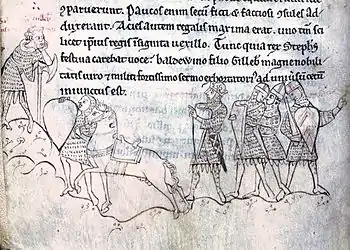 paruerunt. Paucos enim secũ ficti & factiosi c̃sules ad
duxerant. Acies autem regalis maxima erat. uno tm̃ sci
licet ip̃ius regis insignita uexillo. Tunc quia rex Steph̃s
festiua carebat uoce: baldewino filio Gilleb̃ magne nobili
tatis uiro & militi fortissimo sermo exhortatori⁹ ad uniũsũ cetũ
iniunctus est.